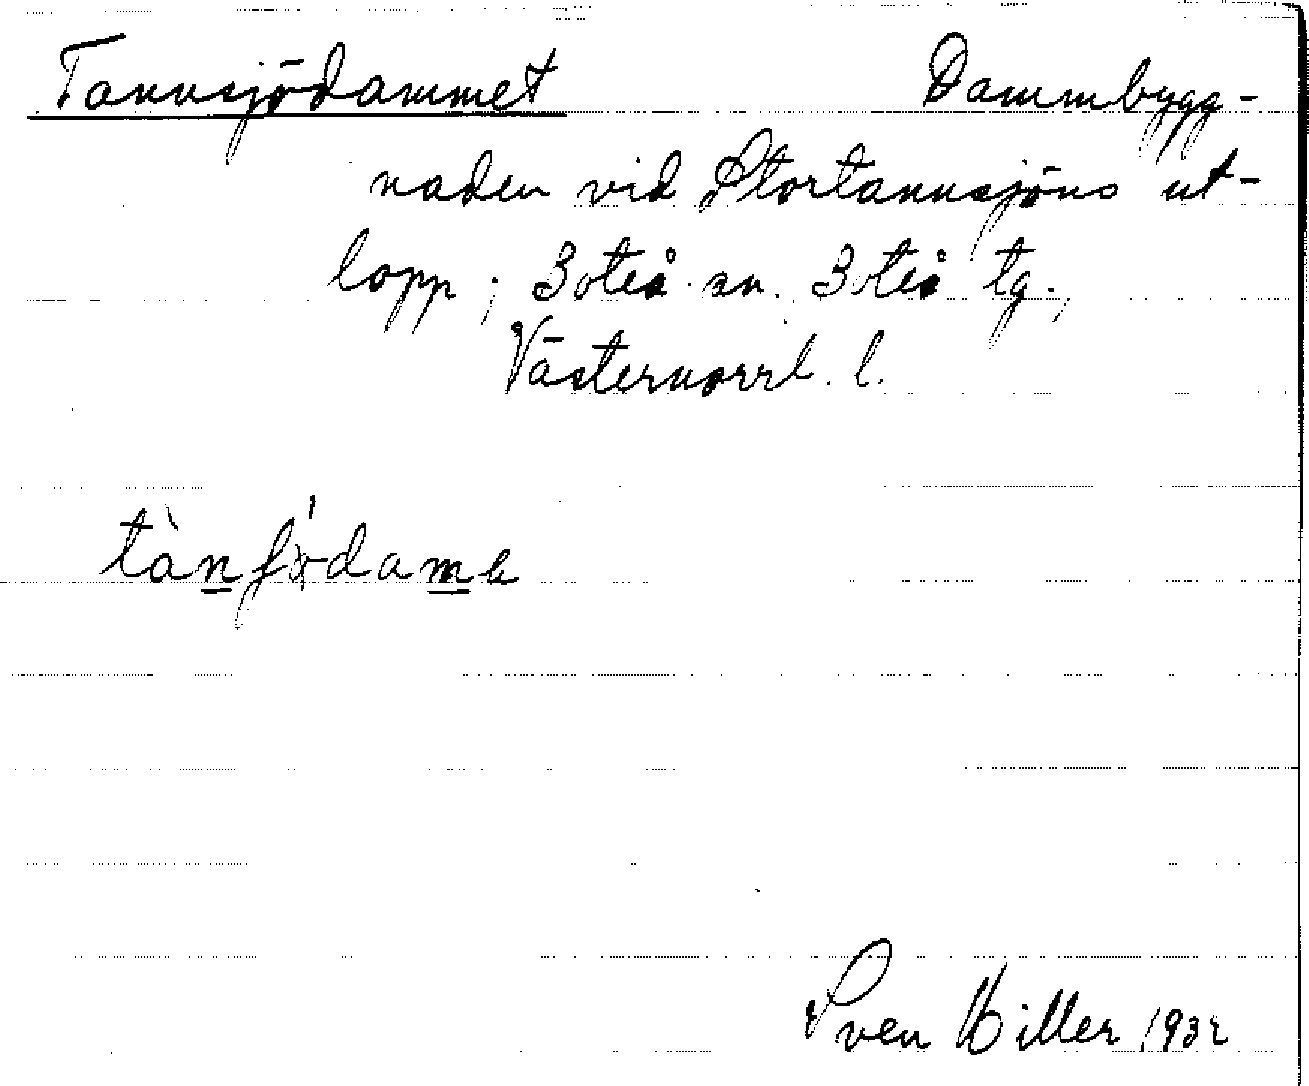 Tannsjödammet Dammbygg-
naden vid Stortannsjöns ut-
lopp; Boteå sn. Boteå tg.,
Västernorrl. l.
tànʃödamɐ
Sven Hiller 1932